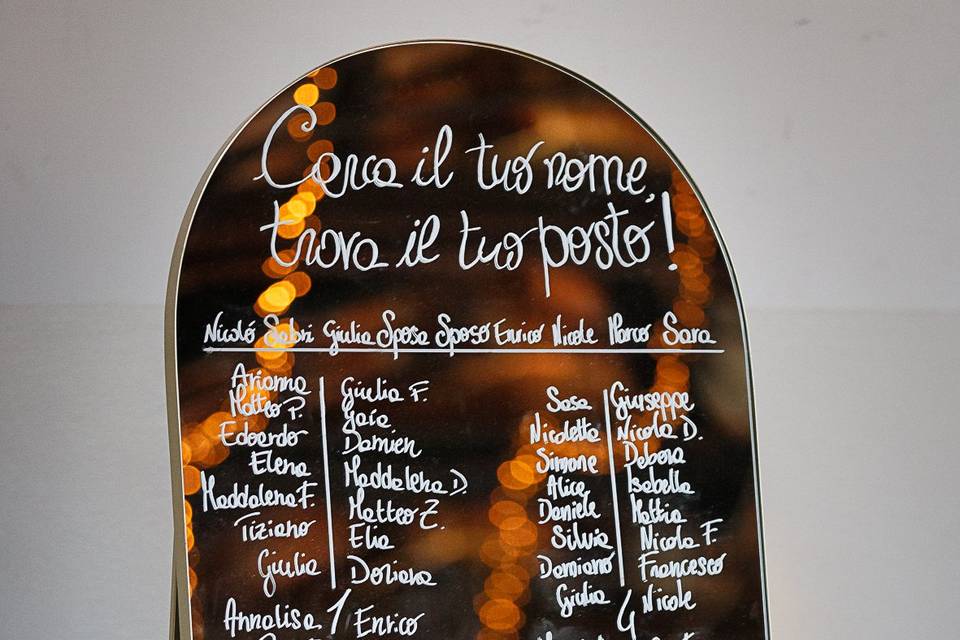 Cerca il tuo nome,
trova il tuo posto!
Nicoló Sabri Giulia Sposa Sposo Enrico Nicole Marco Sara
Arianna
Matteo P.
Edoardo
Elena
Maddalena F.
Tiziano
Giulia
Giulia F.
Gaia
Damien
Maddalena D.
Matteo Z.
Elia
Doriana
1
Annalisa
Enrico
Sasa
Nicoletta
Simone
Alice
Daniele
Silvia
Damiano
Giulia
Giuseppe
Nicola D.
Debora
Isabella
Mattia
Nicola F.
Francesco
Nicole
4